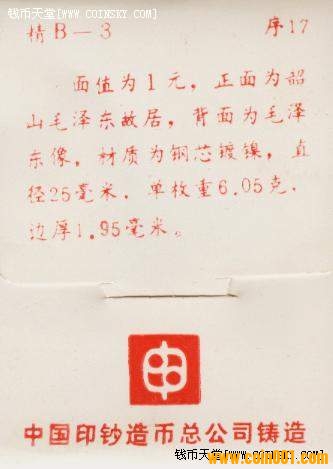 钱币天堂\www.COINSKY.COM
钱币天堂\www.COINSKY.COM
精B－3 序17
面值为1元，正面为韶
山毛泽东故居，背面为毛泽
东像，材质为钢芯镀镍，直
径25毫米，单枚重6.05克，
边厚1.95毫米。
中国印钞造币总公司铸造
钱币天堂\www.
www.coin001.com